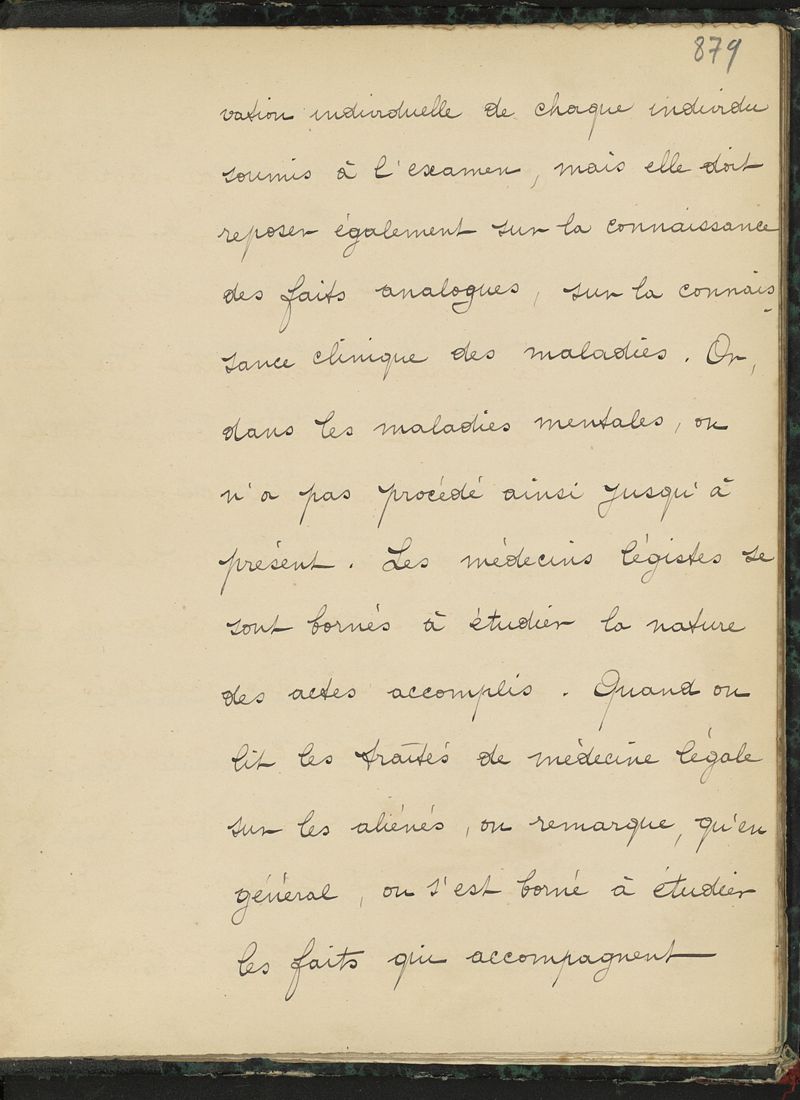 879
vation individuelle de chaque individu
soumis à l'examen, mais elle doit
reposer également sur la connaissance
des faits analogues, sur la connais-
sance clinique des maladies. Or,
dans les maladies mentales, on
n'a pas procédé ainsi jusqu'à
présent. Les médecins légistes se
sont bornés à étudier la nature
des actes accomplis. Quand on
lit les traités de médecine légale
sur les aliénés, on remarque, qu'en
général, on s'est borné à étudier
les faits qui accompagnent